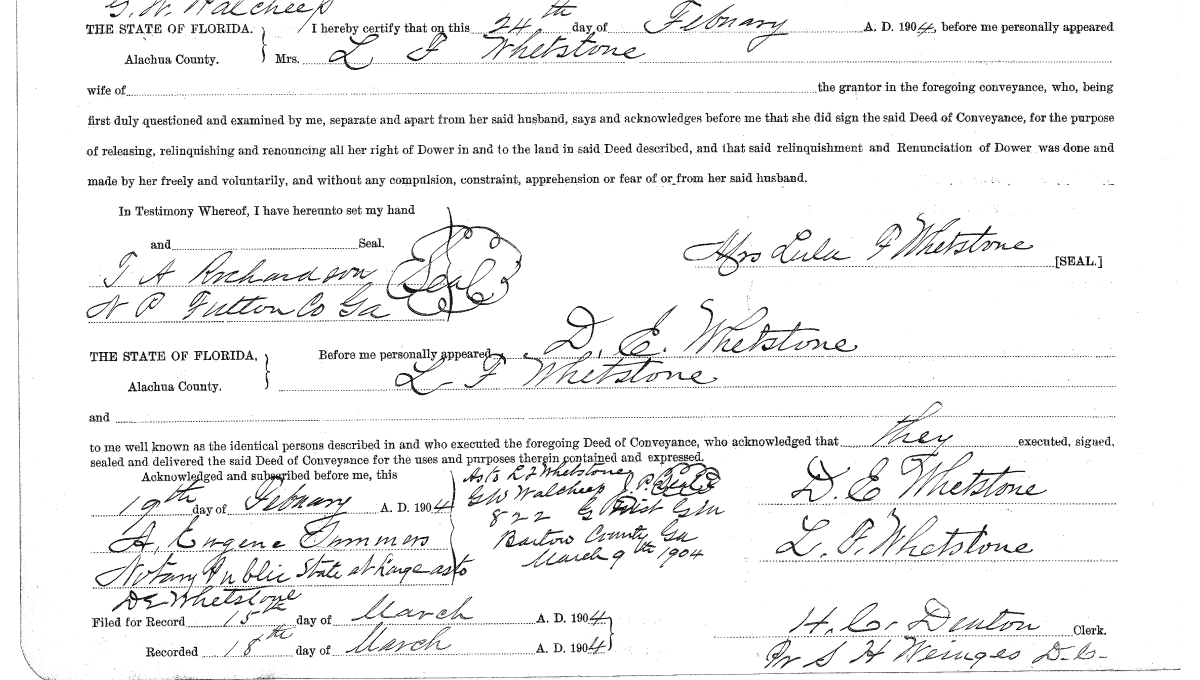 G. W. Walcheep
THE STATE OF FLORIDA. I hereby certify that on this 24th day of Febuary A. D. 1904, before me personally appeared
Alachua County. Mrs. L F Whetstone
wife of the grantor in the foregoing conveyance, who, being
first duly questioned and examined by me, separate and apart from her said husband, says and acknowledges before me that she did sign the said Deed of Conveyance, for the purpose
of releasing, relinquishing and renouncing all her right of Dower in and to the land in said Deed described, and that said relinquishment and Renunciation of Dower was done and
made by her freely and voluntarily, and without any compulsion, constraint, apprehension or fear of or from her said husband.
In Testimony Whereof, I have hereunto set my hand
and Seal.
Mrs Lula F Whetstone [SEAL.]
T A Richardson Seal
N P Fulton Co Ga
D. E. Whetstone
THE STATE OF FLORIDA, Before me personally appeared
Alachua County. L. F Whetstone
and
to me well known as the identical persons described in and who executed the foregoing Deed of Conveyance, who acknowledged that they executed, signed,
sealed and delivered the said Deed of Conveyance for the uses and purposes therein contained and expressed.
Acknowledged and subscribed before me, this
19th day of Febuary A. D. 1904
As to L F Whetstone
G W Walcheep J. P. Seal
822 G Dist G M
Bartow County Ga
March 9th 1904
D. E Whetstone
L. F. Whetstone
A. Eugene
Notary Public State at Large as to
D E Whetstone
Filed for Record 15th day of March A. D. 1904
Recorded 18th day of March A. D. 1904
H. C. Denton Clerk.
Pr S H Wienges D. C.